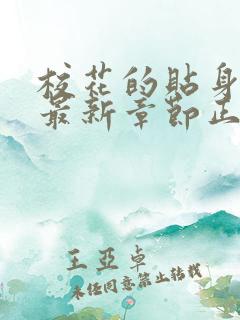 校花的贴身
最新章节正
王亚卓
未经同意禁止转载